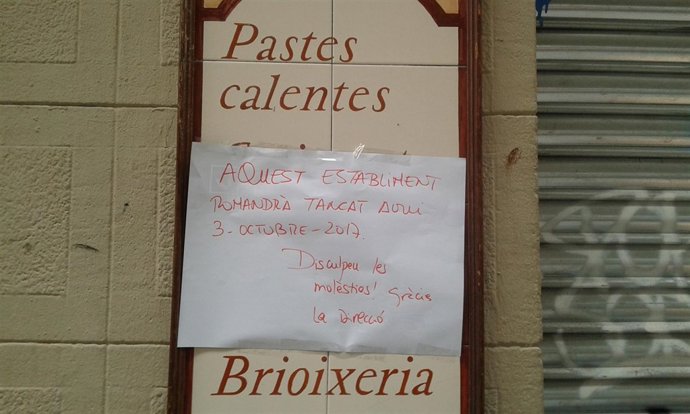 Pastes
calentes
AQUEST ESTABLIMENT
ROMANDRÀ TANCAT AVUI
3-OCTUBRE-2017.
Disculpeu les
molèsties! Gràcies
La Direcció
Brioixeria